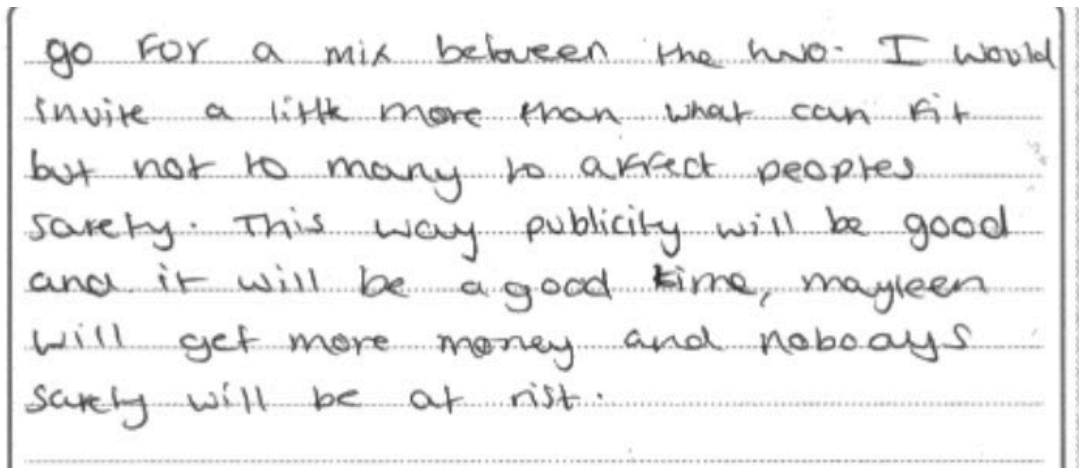 go For a mix between the two. I would
invite a little more than what can fit
but not to many to affect peoples
safety. This way publicity will be good
and it will be a good time, mayleen
will get more money and nobodys
safety will be at risk.